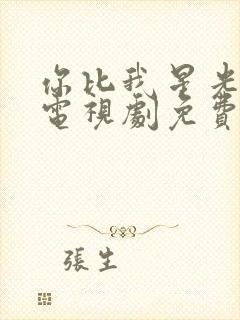 你比我星光
電視劇免費
張生